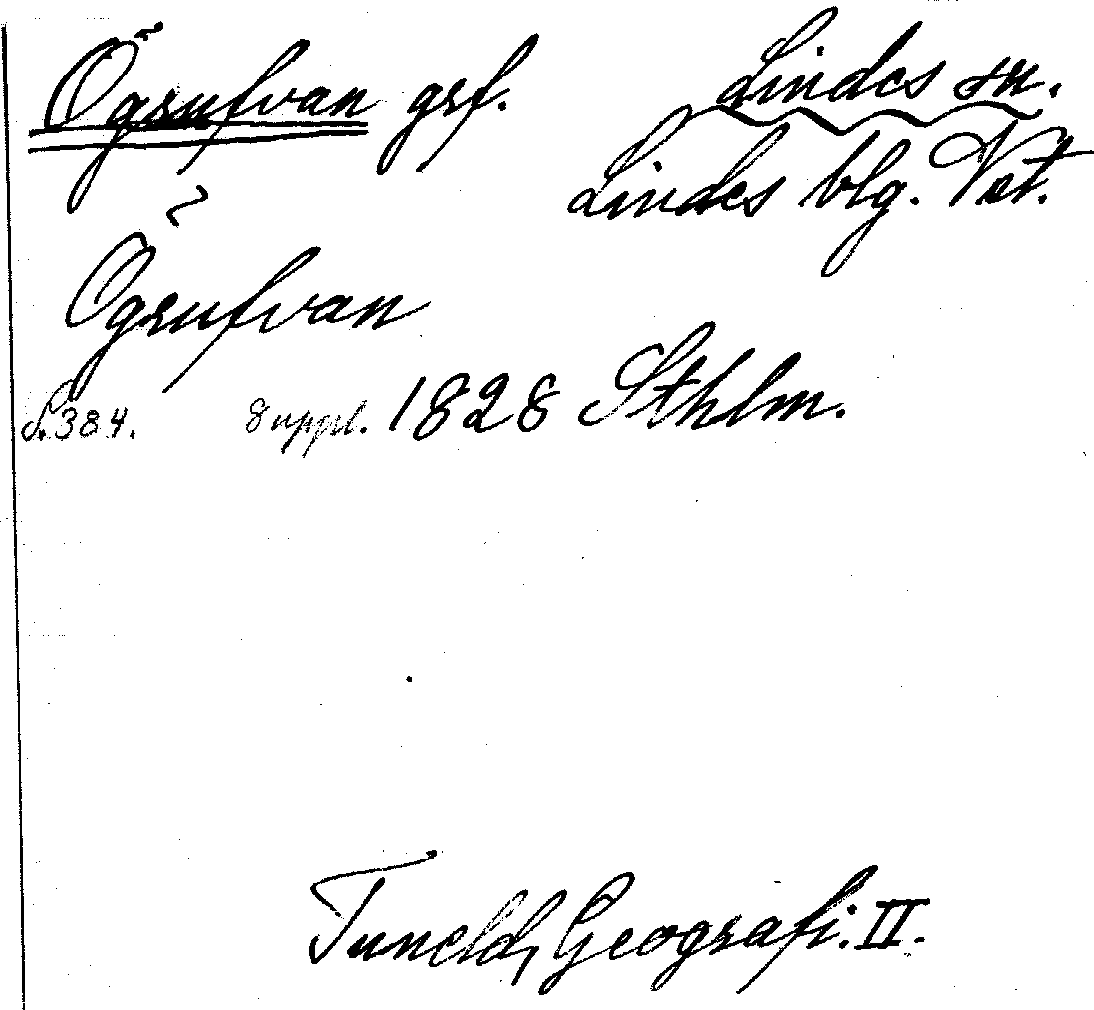 Ögrufvan grf. Lindes sn.
Lindes blg. Vst.
Ögrufvan
S. 384. Suppl. 1828 Sthlm.
Tuneld, Geografi. II.